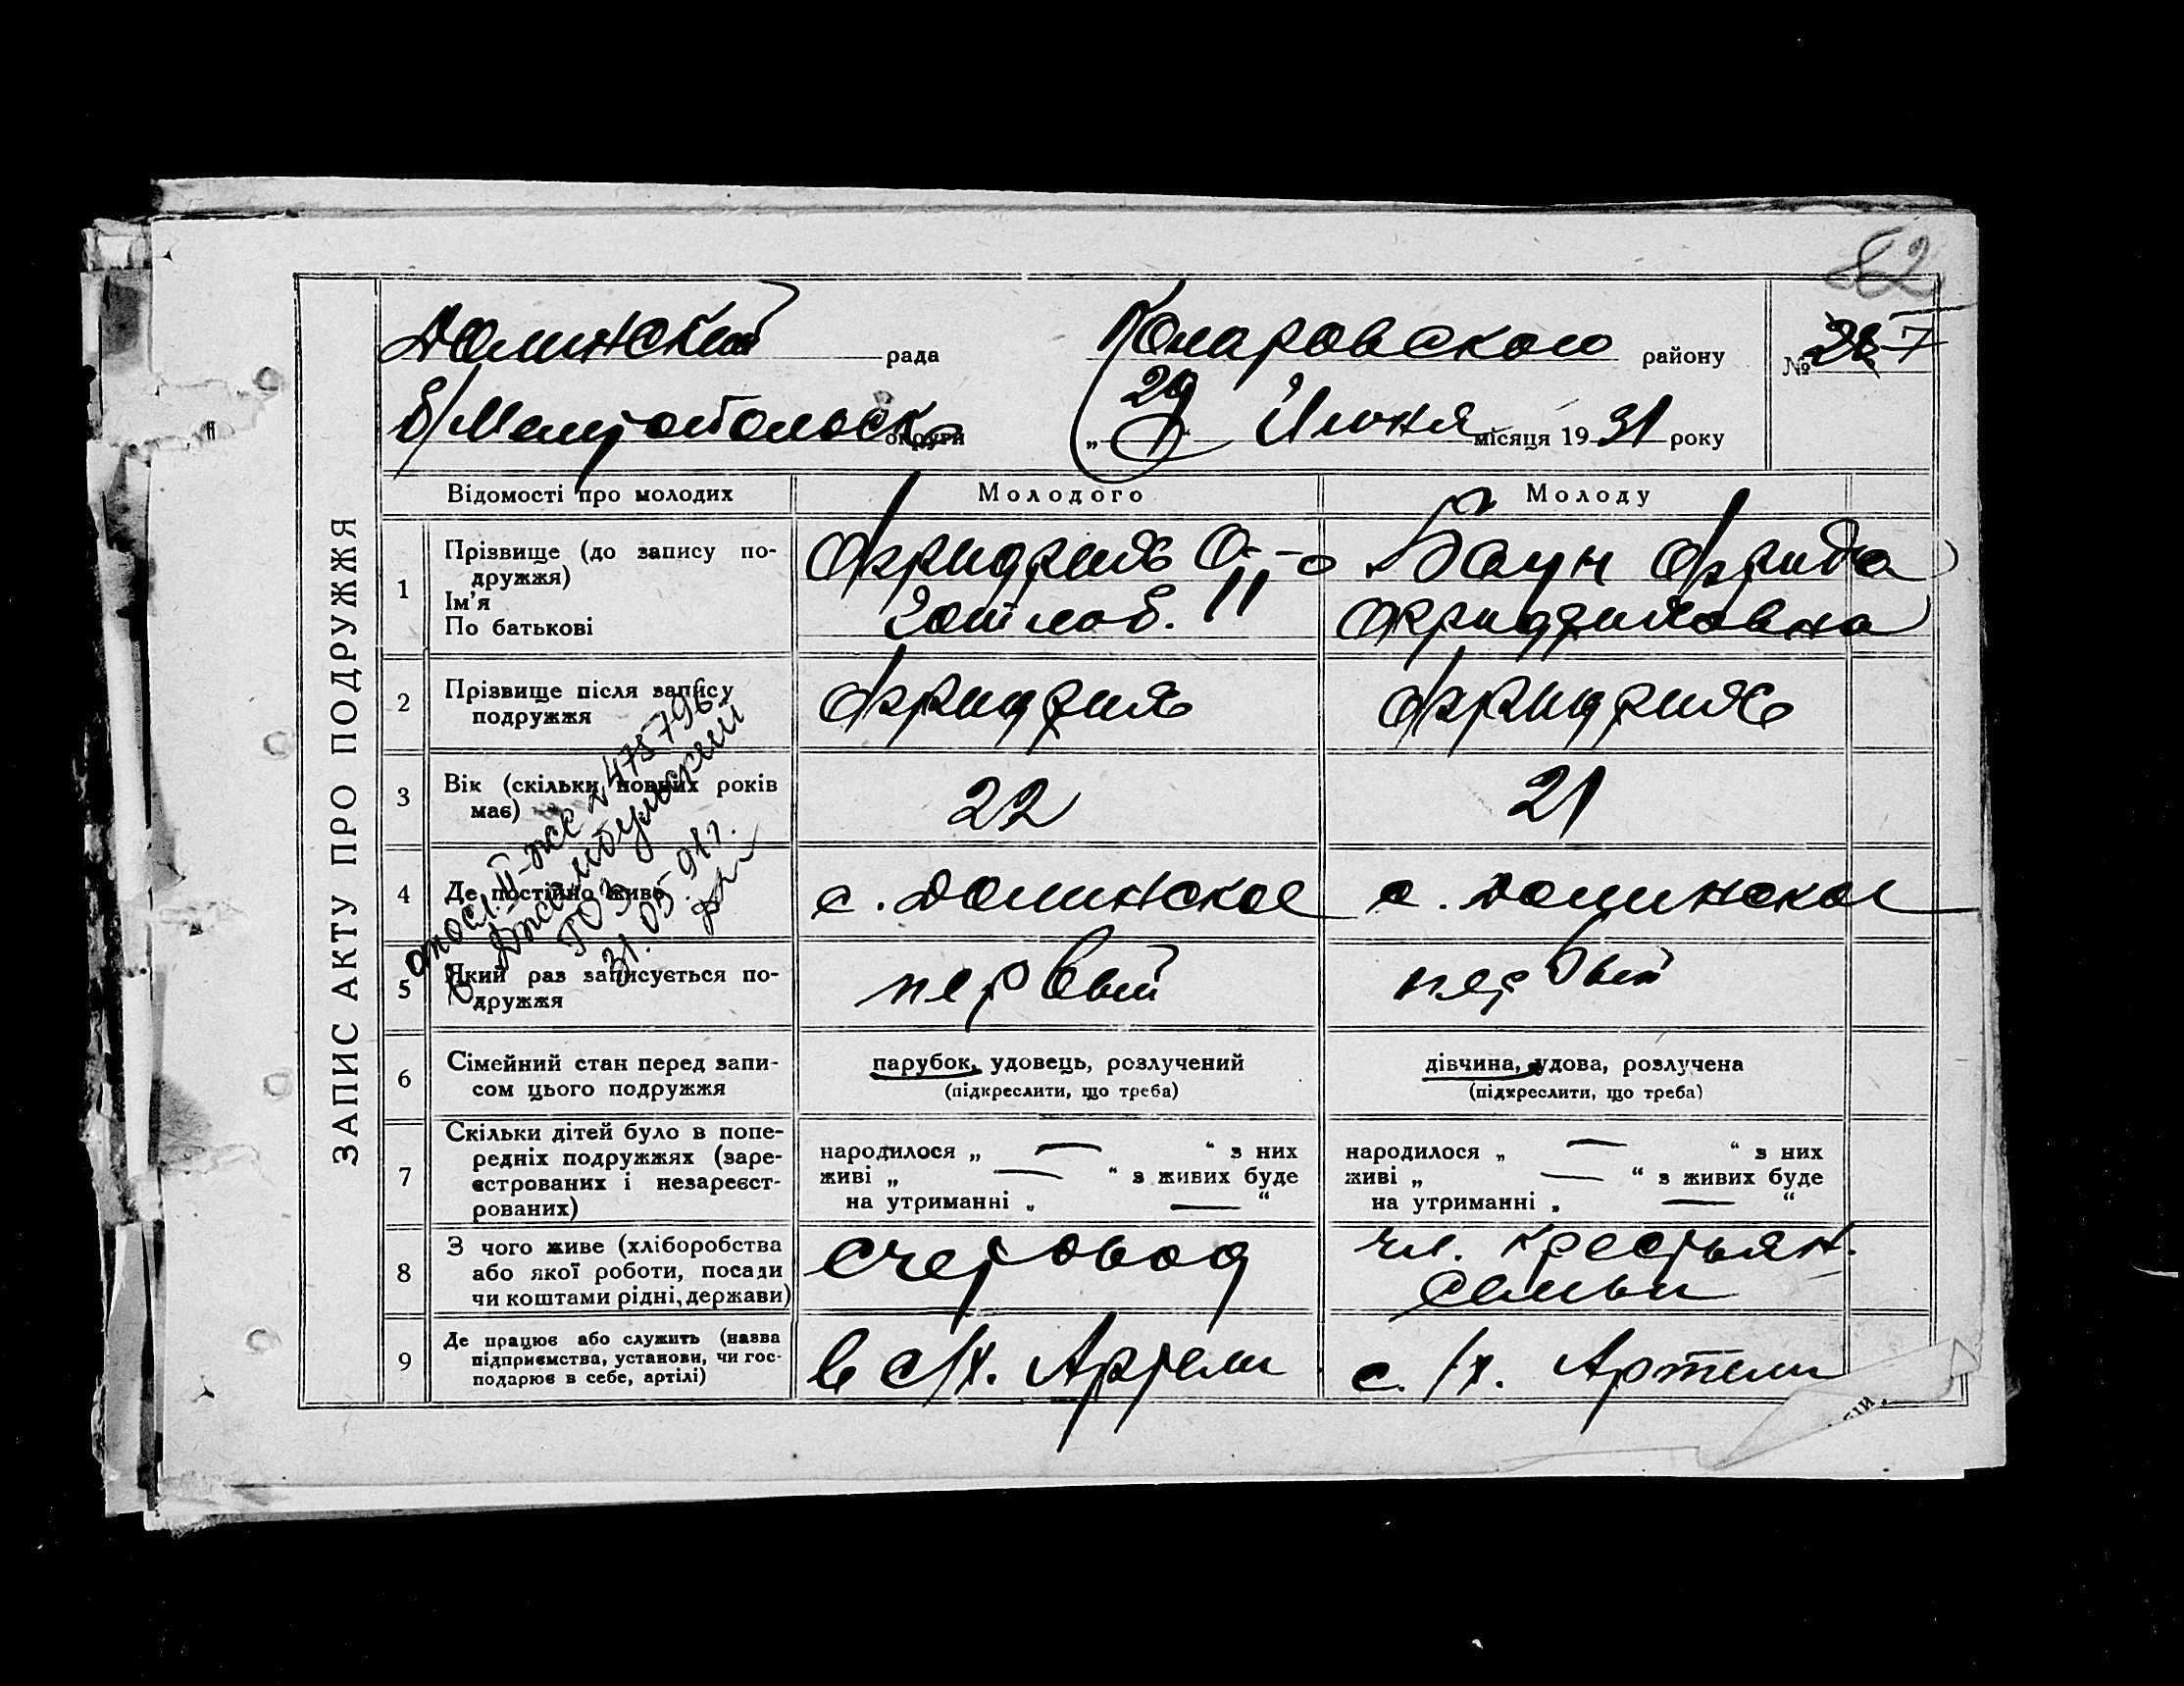 62
Долинский рада Коларовского району № 26 7
б/Мелитопольск округи „29“ Июня місяця 1931 року
ЗАПИС АКТУ ПРО ПОДРУЖЖЯ
Відомості про молодих Молодого Молоду
1 Прізвище (до запису по-
дружжя)
Ім'я
По батькові
Фридрих Отто
Готлоб.
Баун Фрида
Фридриховна
2 Прізвище після запису
подружжя
Фридрих Фридрих
3 Вік (скільки повних років
має)
22 21
4 Де постійно живе
с. Долинское с. Долинское
5 Який раз записується по-
дружжя
первый первый
6 Сімейний стан перед запи-
сом цього подружжя
парубок, удовець, розлучений
(підкреслити, що треба)
дівчина, удова, розлучена
(підкреслити, що треба)
7 Скільки дітей було в попе-
редніх подружжях (заре-
єстрованих і незареєст-
рованих)
народилося „ — “ з них
живі „ — “ з живих буде
на утриманні „ — “
народилося „ — “ з них
живі „ — “ з живих буде
на утриманні „ — “
8 З чого живе (хліборобства
або якої роботи, посади
чи коштами рідні, держави)
счетовод
чл. крестьян.
семьи
9 Де працює або служить (назва
підприємства, установи, чи гос-
подарює в себе, артілі)
в с/х. Артели с./х. Артели
II-ЖС 475796
Джамбулский
31.05-91г.